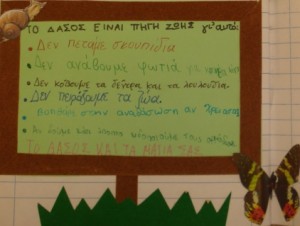 ΤΟ ΔΑΣΟΣ ΕΙΝΑΙ ΠΗΓΗ ΖΩΗΣ γι' αυτό:
• Δεν πετάμε σκουπίδια
• Δεν ανάβουμε φωτιά για
• Δεν κόβουμε τα δέντρα και τα λουλούδια.
• Δεν πειράζουμε τα ζώα.
• στην αναδάσωση αν χρειαστεί
• Αν δούμε
ΤΟ ΔΑΣΟΣ ΚΑΙ ΤΑ ΜΑΤΙΑ ΣΑΣ